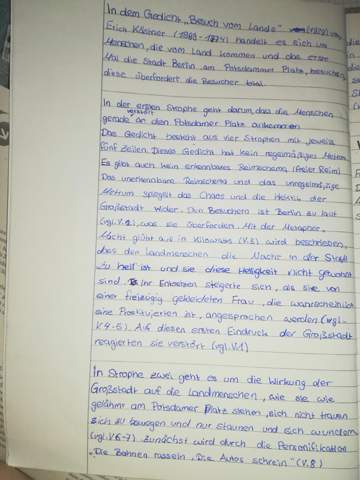 In dem Gedicht „Besuch vom Lande" (1929) von
Erich Kästner (1899-1974) handelt es sich um
Menschen, die vom Land kommen und das erste
Mal die Stadt Berlin am Potsdammer Platz, besuchen,
diese überfordert die Besucher total.
In der ersten Strophe geht darum, dass die Menschen
verstört
gerade an den Potsdamer Platz ankommen
Das Gedicht besteht aus vier Strophen mit jeweils
fünf Zeilen. Dieses Gedicht hat kein regelmäßiges Metrum
Es gibt auch kein erkennbares Reimschema (freier Reim)
Das unerkennbare Reimschema und das unregelmäßige
Metrum spiegelt das Chaos und die Hektik der
Großstadt wider. Den Besuchern ist Berlin zu laut
(vgl. V.2), was sie überfordert. Mit der Metapher
„Nacht glüht auf in Kilowatts" (V.3) wird beschrieben,
dass den Landmenschen die Nacht in der Stadt
zu hell ist und sie diese Helligkeit nicht gewohnt
sind. Ihr Entsetzen steigerte sich, als sie von
einer freizügig gekleideten Frau, die wahrscheinlich
eine Prostituierten ist, angesprochen werden (vgl.
V. 4-5). Auf diesen ersten Eindruck der Großstadt
reagierten sie verstört (vgl. V.1)
In Strophe zwei geht es um die Wirkung der
Großstadt auf die Landmenschen, wie sie wie
gelähmt am Potsdamer Platz stehen, sich nicht trauen
sich zu bewegen und nur staunen und sich wundern
(vgl. V.6-7) Zunächst wird durch die Personifikation
„Die Bahnen rasseln, Die Autos schrein" (V.8)